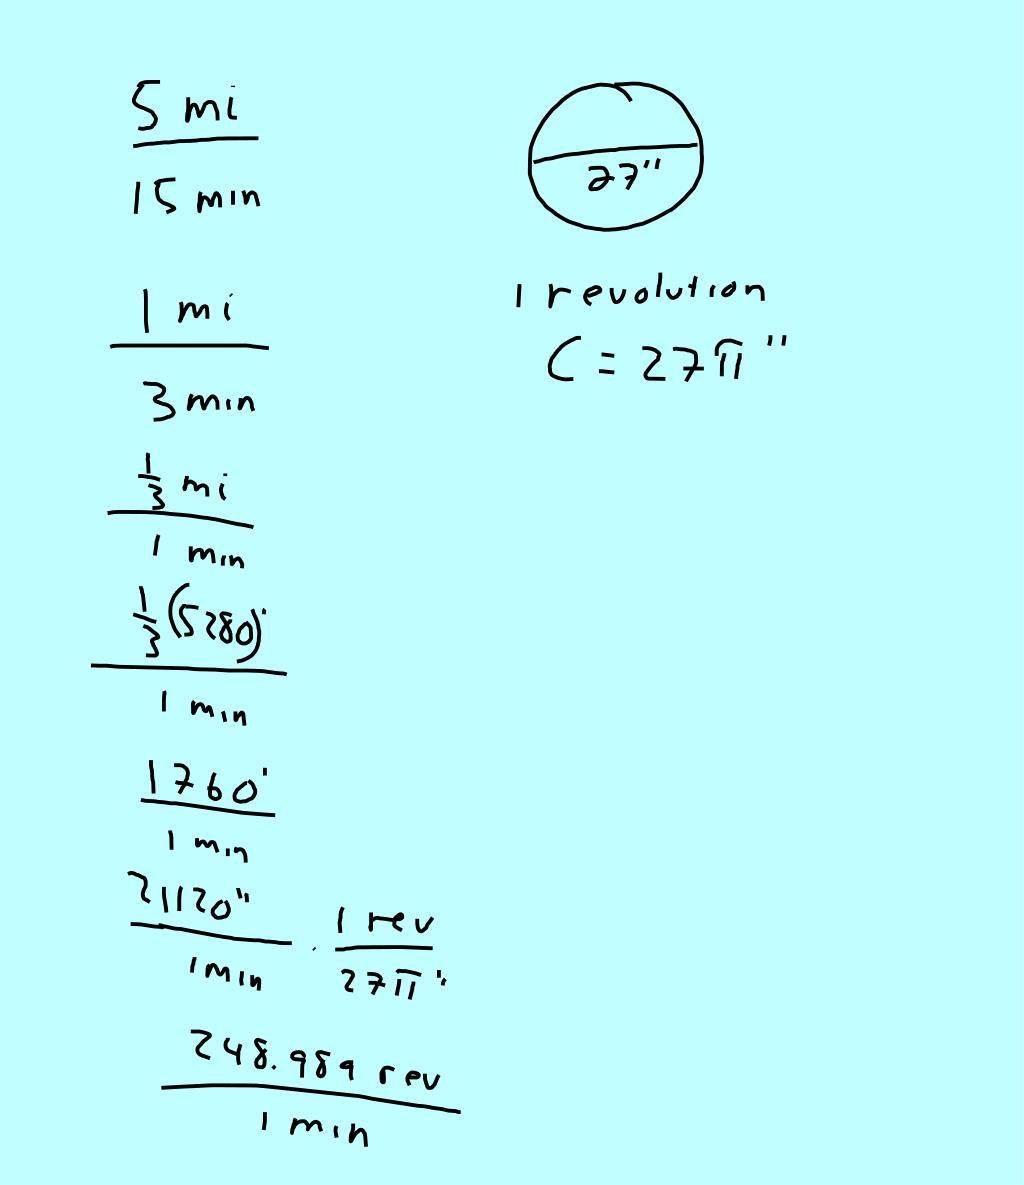 5 mi
15 min
1 mi
3 min
1/3 mi
1 min
1/3 (5280)'
1 min
1760'
1 min
21120" · 1 rev
1 min 27π"
248.989 rev
1 min
27"
1 revolution
C = 27π"